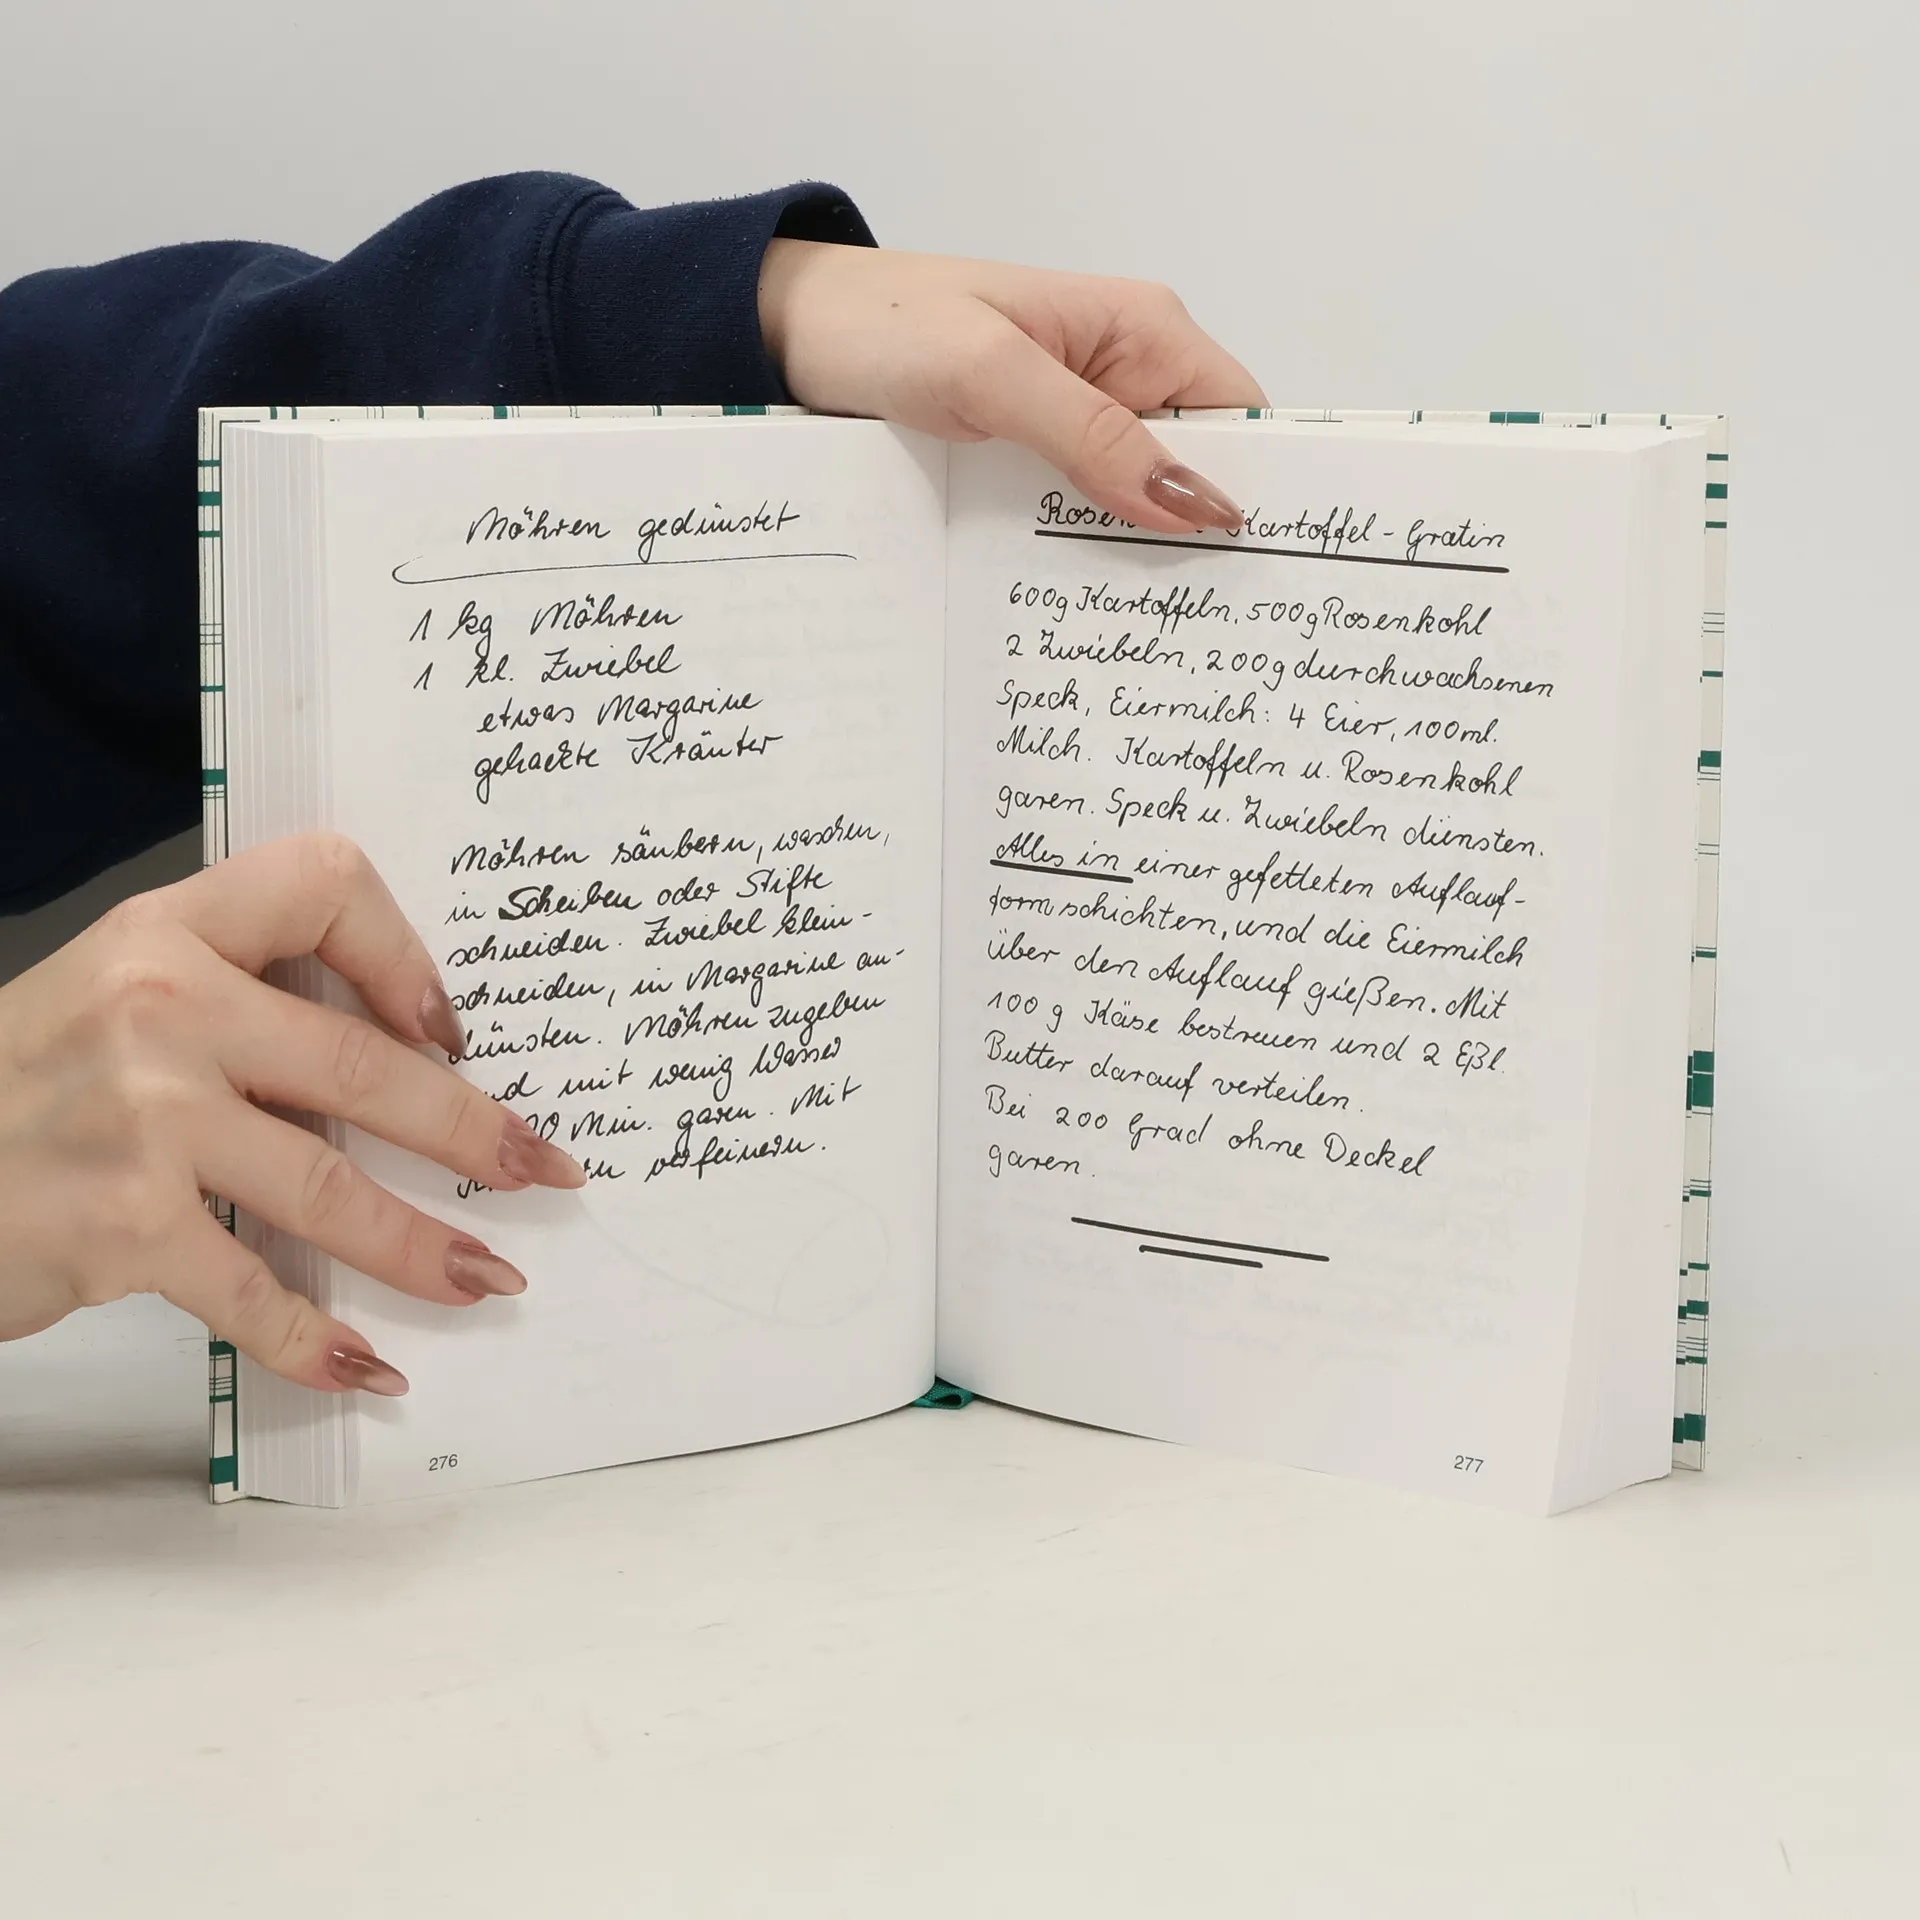 Möhren gedünstet
1 kg Möhren
1 kl. Zwiebel
etwas Margarine
gehackte Kräuter
Möhren säubern, waschen,
in Scheiben oder Stifte
schneiden. Zwiebel klein-
schneiden, in Margarine an-
dünsten. Möhren zugeben
mit wenig Wasser
Min. garen. Mit
verfeinern.
276
Kartoffel - Gratin
600g Kartoffeln, 500g Rosenkohl
2 Zwiebeln, 200g durchwachsenen
Speck, Eiermilch: 4 Eier, 100ml.
Milch. Kartoffeln u. Rosenkohl
garen. Speck u. Zwiebeln dünsten.
Alles in einer gefetteten Auflauf-
form schichten, und die Eiermilch
über den Auflauf gießen. Mit
100 g Käse bestreuen und 2 Eßl.
Butter darauf verteilen.
Bei 200 Grad ohne Deckel
garen.
277